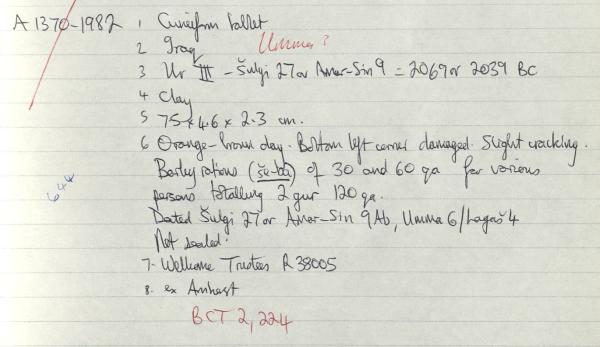 A 1370-1982 1 Cuneiform tablet
2 Iraq Umma?
3 Ur III - Šulgi 27 or Amar-Sin 9 = 2069 or 2039 BC
4 Clay
5 75 × 4.6 × 2.3 cm.
6 Orange-brown clay. Bottom left corner damaged. Slight cracking.
Barley rations (še-ba) of 30 and 60 qa for various
persons totalling 2 gur 120 qa.
Dated Šulgi 27 or Amar-Sin 9 Ab, Umma 6/Lagaš 4
Not sealed.
7. Wellcome Trustees R 38005
8. ex Amherst
BCT 2, 224
644